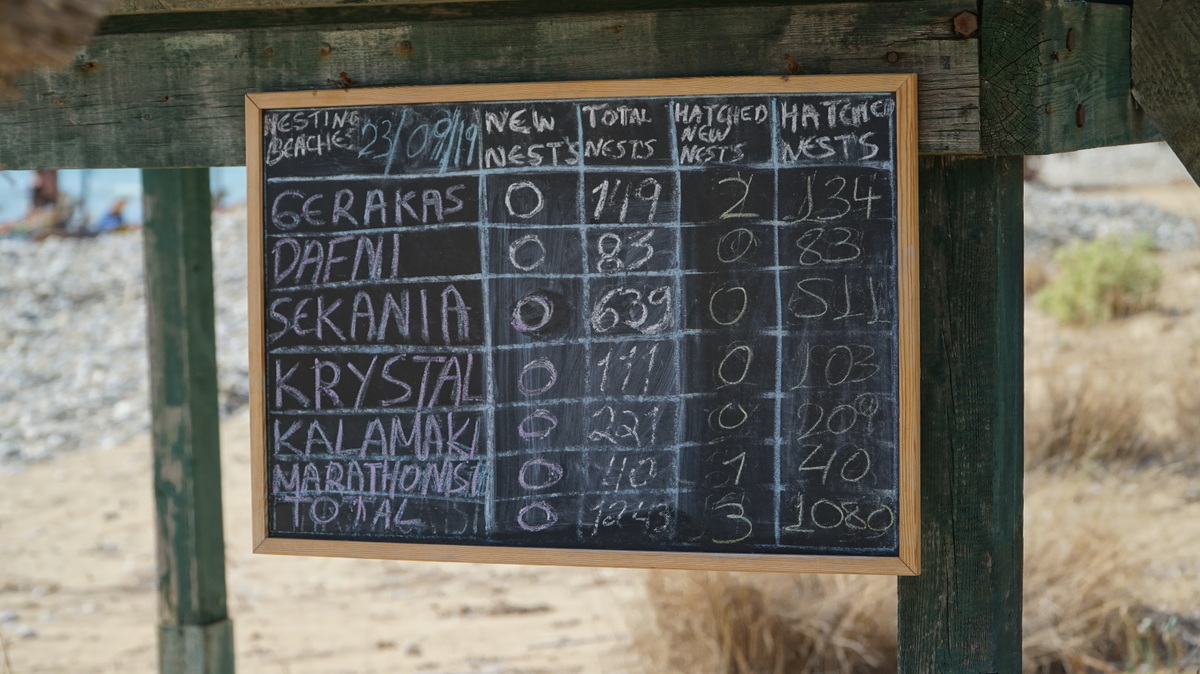 NESTING BEACHES 23/09/19 NEW NEST'S TOTAL NEST'S HATCHED NEW NEST'S HATCHED NEST'S
GERAKAS 0 149 2 134
DAFNI 0 83 0 83
SEKANIA 0 639 0 511
KRYSTAL 0 111 0 103
KALAMAKI 0 221 0 209
MARATHONSI 0 40 1 40
TOTAL 0 1243 3 1080